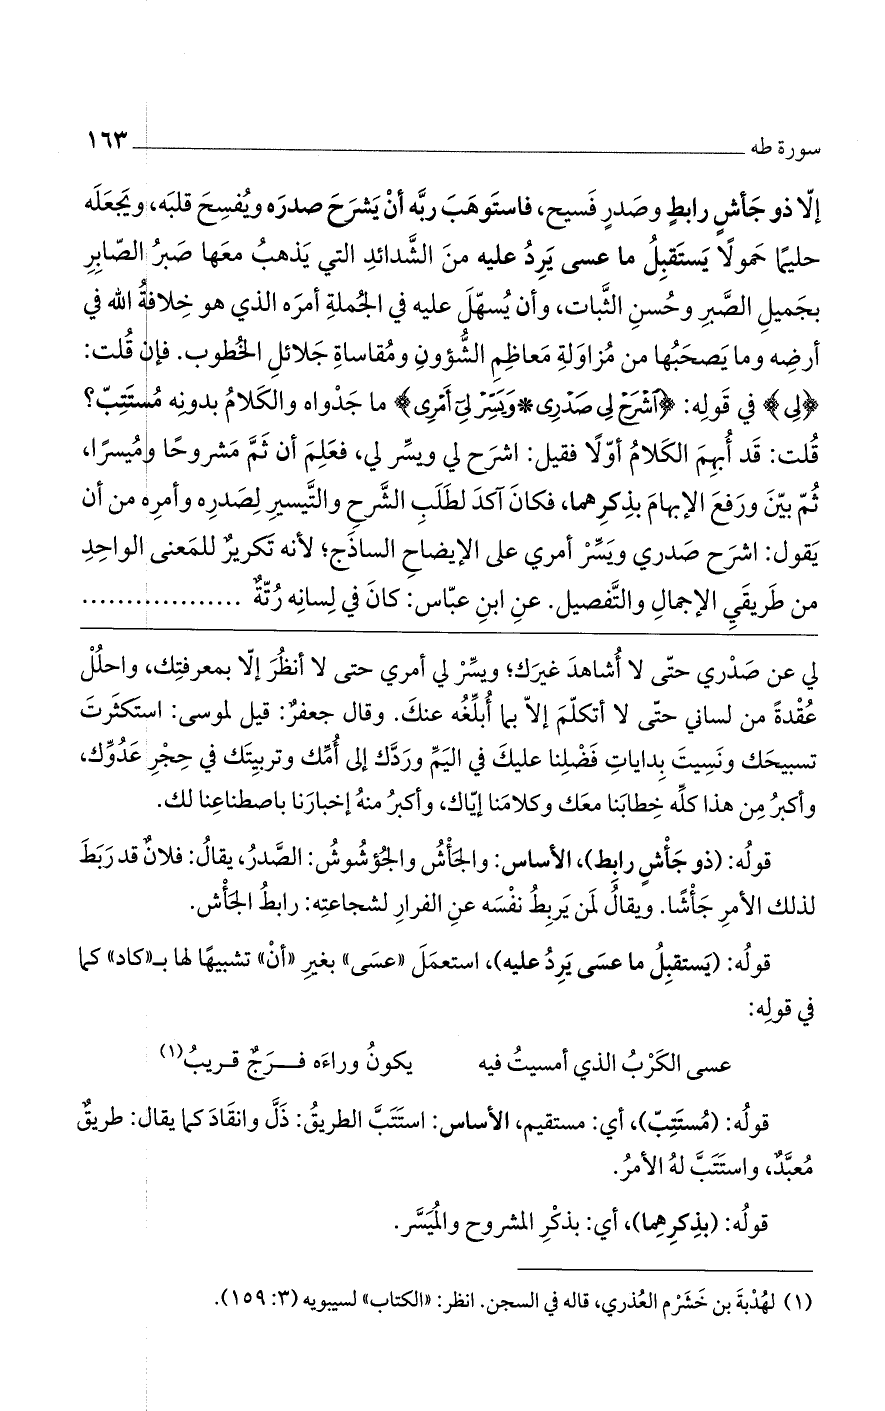 سورة طه ١٦٣
إلّا ذو جَأشٍ رابطٍ وصَدرٍ فَسيح، فاستَوهَبَ ربَّه أنْ يَشرَحَ صدرَه ويُفسِحَ قلبَه، ويَجعَلَه
حليمًا حَمولًا يَستَقبِلُ ما عسى يَرِدُ عليه منَ الشَّدائدِ التي يَذهبُ معَها صَبرُ الصّابِرِ
بجَميلِ الصَّبرِ وحُسنِ الثَّبات، وأن يُسهّلَ عليه في الجُملةِ أمرَه الذي هو خِلافةُ الله في
أرضِه وما يَصحَبُها من مُزاوَلةِ مَعاظِمِ الشُّؤونِ ومُقاساةِ جَلائلِ الخُطوب. فإن قُلت:
﴿لِي﴾ في قَولِه: ﴿ٱشْرَحْ لِى صَدْرِى * وَيَسِّرْ لِىٓ أَمْرِى﴾ ما جَدْواه والكَلامُ بدونِه مُستَتِبّ؟
قُلت: قَد أُبهِمَ الكَلامُ أوّلًا فقيل: اشرَح لي ويسِّر لي، فعَلِمَ أن ثَمَّ مَشروحًا ومُيسرًا،
ثُمّ بيّنَ ورَفعَ الإبهامَ بذِكرِهما، فكانَ آكدَ لطَلَبِ الشَّرحِ والتَّيسيرِ لِصَدرِه وأمرِه من أن
يَقول: اشرَح صَدري ويَسِّرْ أمري على الإيضاحِ الساذَج؛ لأنه تَكريرٌ للمَعنى الواحِدِ
من طَريقَيِ الإجمالِ والتَّفصيل. عنِ ابنِ عبّاس: كانَ في لِسانِه رُتّةٌ ..................
لي عن صَدْري حتّى لا أُشاهدَ غيرَك؛ ويسِّرْ لي أمري حتى لا أنظُرَ إلّا بمعرفتِك، واحلُلْ
عُقْدةً من لساني حتّى لا أتكلّمَ إلاّ بما أُبلِّغُه عنكَ. وقال جعفرٌ: قيل لموسى: استَكثَرتَ
تسبيحَك ونَسِيتَ بِداياتِ فَضْلِنا عليكَ في اليَمِّ وردَّك إلى أُمِّك وتربيتَك في حِجْرِ عَدُوِّك،
وأكبرُ مِن هذا كلِّه خِطابَنا معَك وكلامَنا إيّاك، وأكبرُ منهُ إخبارَنا باصطناعِنا لك.
قولُه: (ذو جَأْشٍ رابِط)، الأساس: والجَأْشُ والجُؤشُوشُ: الصَّدرُ، يقالُ: فلانٌ قد رَبَطَ
لذلك الأمرِ جَأْشًا. ويقالُ لمَن يَربِطُ نفْسَه عنِ الفرارِ لشجاعتِه: رابطُ الجَأْش.
قولُه: (يَستقبِلُ ما عسَى يَرِدُ عليه)، استعمَلَ «عسَى» بغيرِ «أنْ» تشبيهًا لها بـ«كاد» كما
في قولِه:
عسى الكَرْبُ الذي أمسيتُ فيه يكونُ وراءَه فَـــرَجٌ قـريبُ(١)
قولُه: (مُستَتِبّ)، أي: مستقيم، الأساس: استَتَبَّ الطريقُ: ذَلَّ وانقَادَ كما يقال: طريقٌ
مُعبَّدٌ، واستَتَبَّ لهُ الأمرُ.
قولُه: (بذِكرِهِما)، أي: بذكْرِ المشروح والمُيَسَّر.
(١) لهُدْبةَ بن خَشْرم العُذري، قاله في السجن. انظر: «الكتاب» لسيبويه (٣: ١٥٩).